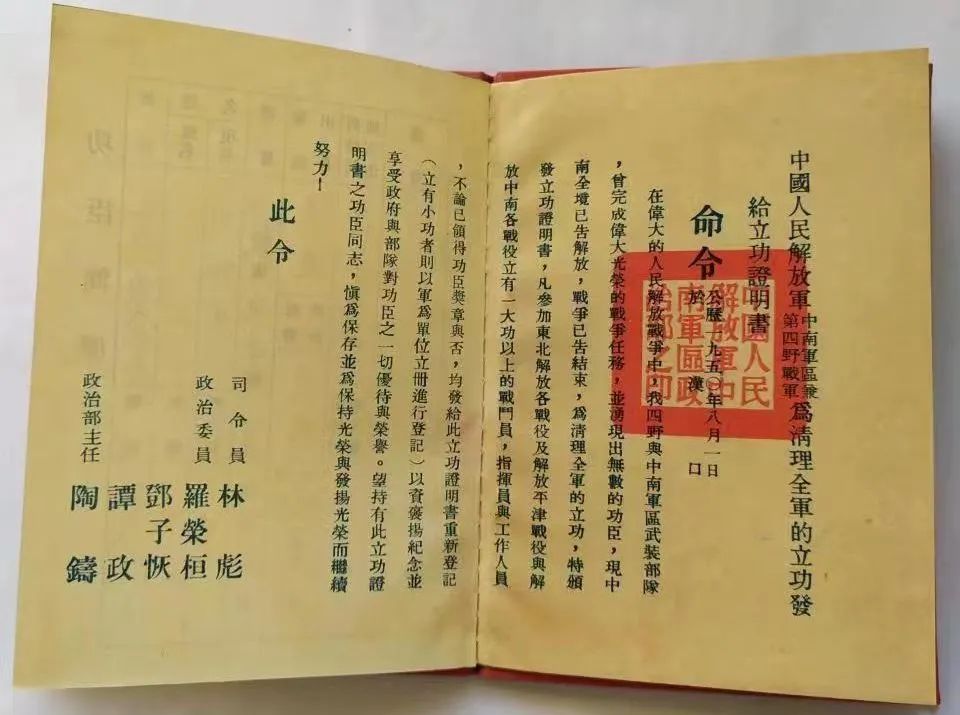 中國人民解放軍中南軍區兼第四野戰軍爲清理全軍的立功發
給立功證明書
命令
公歷一九五〇年八月一日
於漢口
中國人民
解放軍中
南軍區政
治部之印
在偉大的人民解放戰爭中，我四野與中南軍區武裝部隊
，曾完成偉大光榮的戰爭任務，並湧現出無數的功臣，現中
南全境已告解放，戰爭已告結束，爲清理全軍的立功，特頒
發立功證明書，凡參加東北解放各戰役及解放平津戰役與解
放中南各戰役立有一大功以上的戰鬥員，指揮員與工作人員
，不論已領得功臣獎章與否，均發給此立功證明書重新登記
（立有小功者則以軍爲單位立冊進行登記）以資褒揚紀念並
享受政府與部隊對功臣之一切優待與榮譽。望持有此立功證
明書之功臣同志，愼爲保存並爲保持光榮與發揚光榮而繼續
努力！
此令
司令員 林彪
政治委員 羅榮桓
鄧子恢
譚政
政治部主任 陶鑄